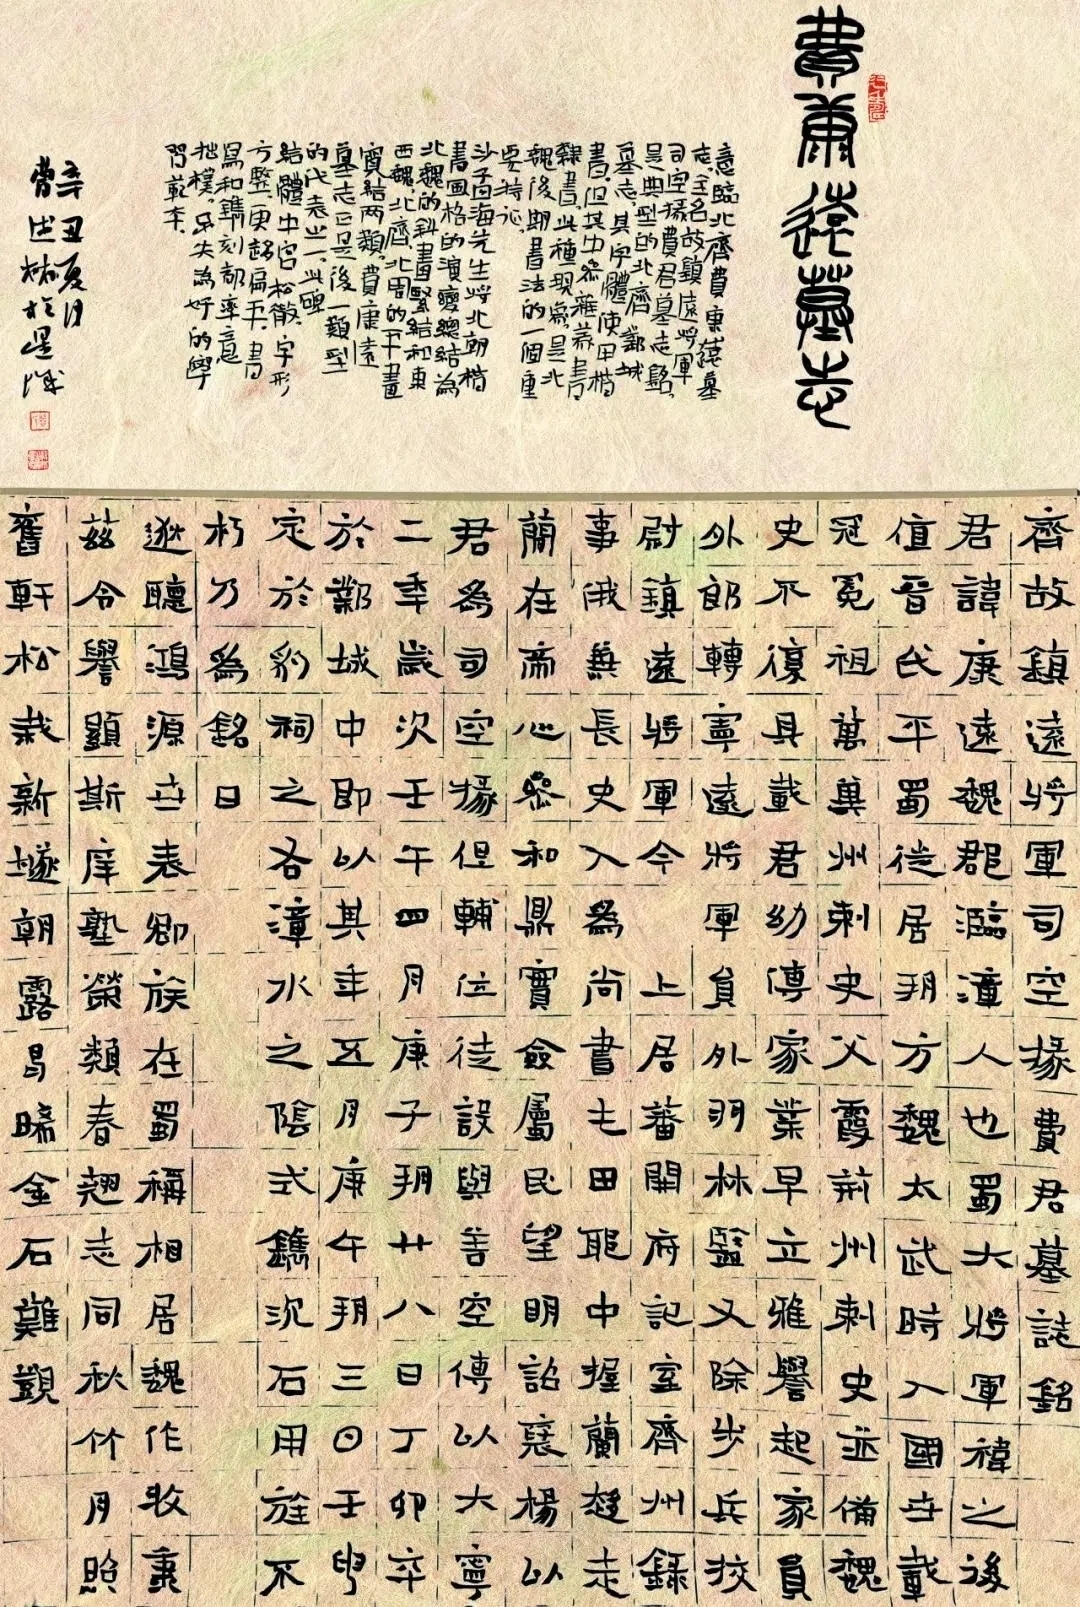 費康遠墓志
意臨北齊費康遠墓
志,全名故鎮遠將軍
司空掾費君墓志銘,
是典型的北齊鄴城
墓志,其字體使用楷
書,但其中參雜篆書
隸書,此種現象,是北
魏後期書法的一個重
要特征。
沙孟海先生將北朝楷
書風格的演變總結為
北魏的斜畫緊結和東
西魏、北齊、北周的平畫
寬結兩類,費康遠
墓志正是後一類型
的代表之一,此碑
結體中宮松散,字形
方整,更趨扁平,書
寫和鐫刻都率意
拙樸,不失為好的學
習範本。
辛丑夏月
齊故鎮遠將軍司空掾費君墓誌銘
君諱康遠魏郡臨漳人也蜀大將軍禕之後
值晉氏平蜀徙居朔方魏太武時入國世載
冠冕祖萬兾州刺史父霞荊州刺史並備魏
史不復具載君幼傳家業早立雅譽起家員
外郎轉寧遠將軍員外羽林監又除步兵挍
尉鎮遠將軍今上居蕃開府記室齊州錄
事俄兼長史入為尚書屯田郎中握蘭趍走
蘭在帝心叅和鼎實僉屬民望明詔襃楊以
君為司空掾但輔位徒設與善空傳以大寧
二年歲次壬午四月庚子朔廿八日丁卯卒
於鄴城中即以其年五月庚午朔三日壬申
定於豹祠之右漳水之陰式鐫沉石用旌不
朽乃為銘曰
逖聽鴻源世表卿族在蜀稱相居魏作牧秉
茲令譽顯斯庠塾榮類春翹志同秋竹月照
舊軒松栽新壠朝露易晞金石難覿